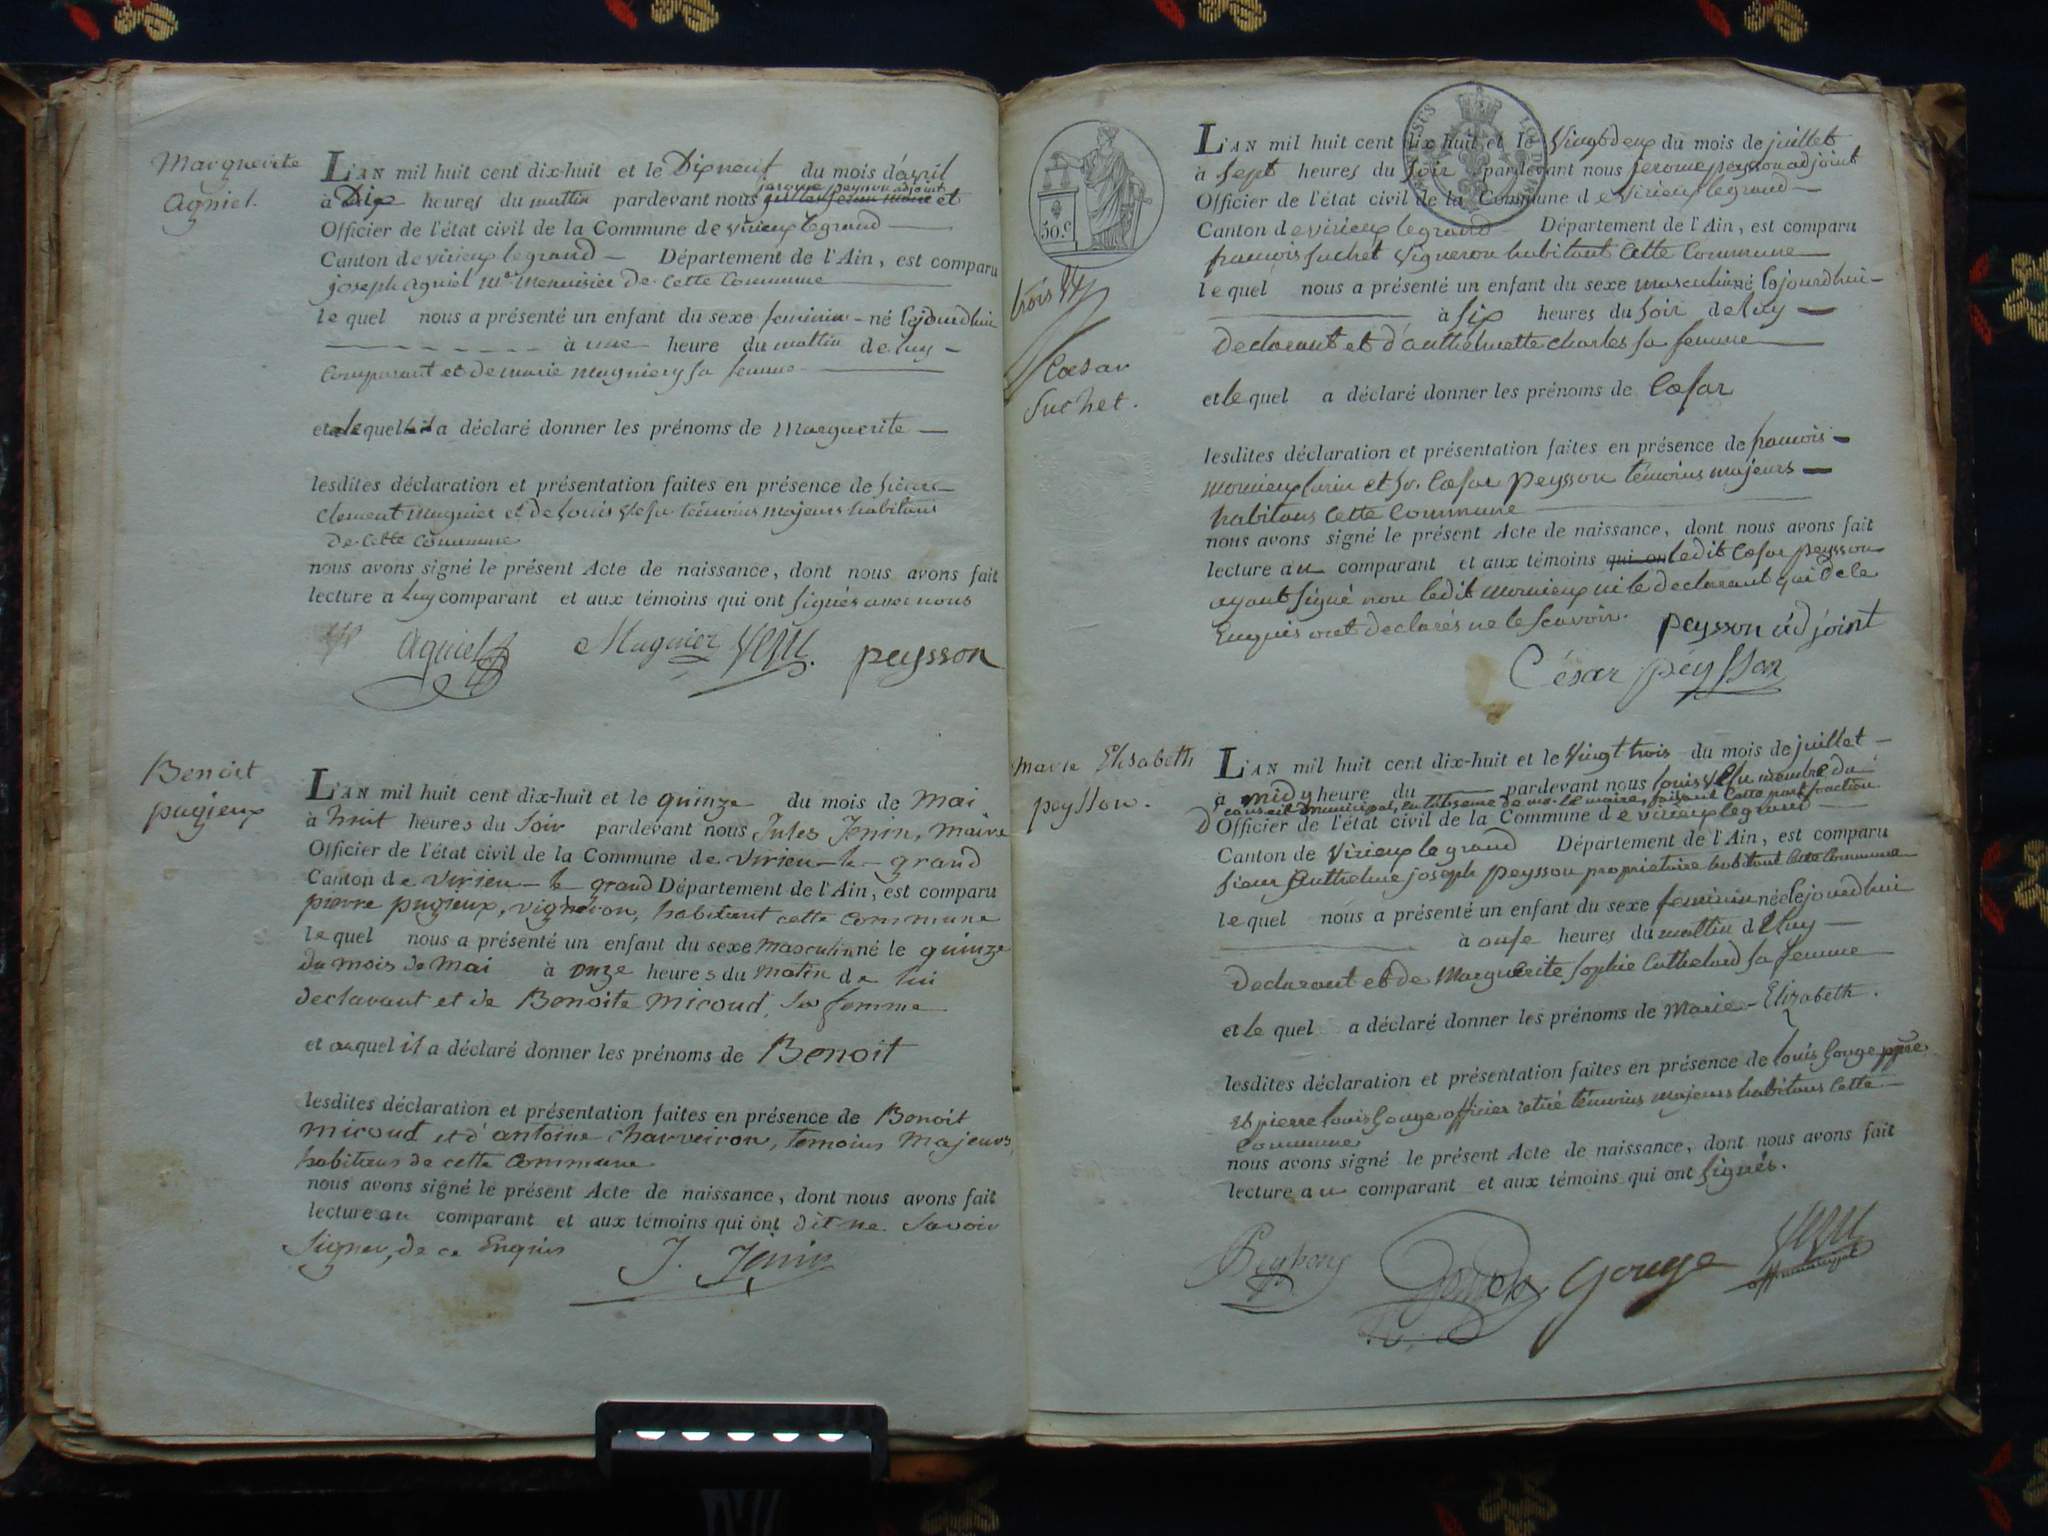 Marguerite
Agniel.
L'AN mil huit cent dix-huit et le Dixneuf du mois d'avril
à Dix heures du mattin pardevant nous jerome peysson adjoint et
Officier de l'état civil de la Commune de virieux legrand
Canton de virieux legrand Département de l'Ain, est comparu
joseph agniel Me Menuisier de cette Commune
le quel nous a présenté un enfant du sexe feminin né lejourdhui
à une heure du mattin de luy
Comparant et de marie magniery sa femme
et lequel a déclaré donner les prénoms de Marguerite
lesdites déclaration et présentation faites en présence de
Clement Mugnier et de Louis témoins majeurs habitans
De Cette Commune
nous avons signé le présent Acte de naissance, dont nous avons fait
lecture a Luy comparant et aux témoins qui ont signés avec nous
Agniel Mugnier peysson
Benoit
pugieux
L'AN mil huit cent dix-huit et le quinze du mois de Mai
à huit heures du Soir pardevant nous Jules Jenin, maire
Officier de l'état civil de la Commune de Virieu-le-grand
Canton de Virieu-le-grand Département de l'Ain, est comparu
pierre pugieux, vigneron, habitant cette commune
le quel nous a présenté un enfant du sexe masculin né le quinze
du mois de mai à onze heures du matin de lui
declarant et de Benoite Micoud, sa femme
et auquel il a déclaré donner les prénoms de Benoit
lesdites déclaration et présentation faites en présence de Benoit
micoud et d'antoine charveiron, temoins Majeurs,
habitans de cette commune
nous avons signé le présent Acte de naissance, dont nous avons fait
lecture au comparant et aux témoins qui ont dit ne savoir
Signer, de ce Enquis J. Jenin
50.c
trois
Cæsar
Suchet.
L'AN mil huit cent dix-huit et le Vingtdeux du mois de juillet
à sept heures du soir pardevant nous jerome peysson adjoint
Officier de l'état civil de la Commune de Virieux legrand
Canton de virieux legrand Département de l'Ain, est comparu
francois suchet Vigneron habitant Cette Commune
le quel nous a présenté un enfant du sexe masculin né lejourdhui
à six heures du soir de luy
Declarant et d'anthelmette charles sa femme
et le quel a déclaré donner les prénoms de Cæsar
lesdites déclaration et présentation faites en présence de francois
mornieux et Sr. Cæsar peysson témoins majeurs
habitans Cette Commune
nous avons signé le présent Acte de naissance, dont nous avons fait
lecture au comparant et aux témoins qui on ledit Cæsar peysson
ayant signé non ledit mornieux ni le declarant qui de ce
Enquis ont declarés ne le scavoir. peysson adjoint
César peysson
marie Elisabeth
peysson.
L'AN mil huit cent dix-huit et le Vingt trois du mois de juillet
à midy heure du pardevant nous louis membre du
conseil municipal, en labsence de mr. le maire, faisant cette part fonction
d'Officier de l'état civil de la Commune de virieux legrand
Canton de Virieux legrand Département de l'Ain, est comparu
sieur Anthelme joseph peysson proprietaire habitant cette Commune
le quel nous a présenté un enfant du sexe feminin née lejourdhui
à onse heures du mattin de luy
Declarant et de Marguerite Sophie Cuthelard sa femme
et le quel a déclaré donner les prénoms de Marie-Elizabeth.
lesdites déclaration et présentation faites en présence de louis Gouge ppre
et pierre louis Gouge officier retiré témoins majeurs habitans Cette
Commune
nous avons signé le présent Acte de naissance, dont nous avons fait
lecture au comparant et aux témoins qui ont signés.
Gouge